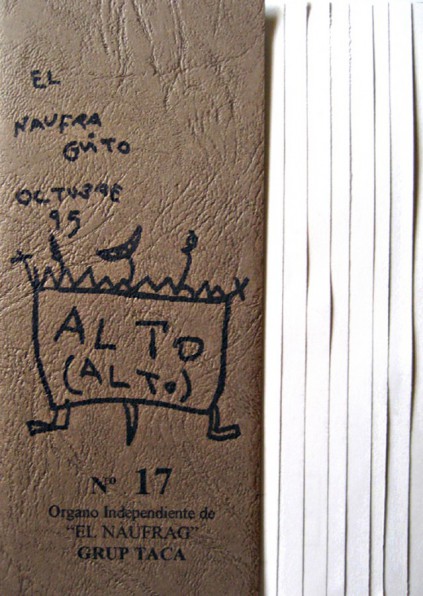 EL
NAUFRA
GUITO
OCTUBRE
95
ALTO
(ALTO)
Nº 17
Organo Independiente de
"EL NAUFRAG"
GRUP TACA